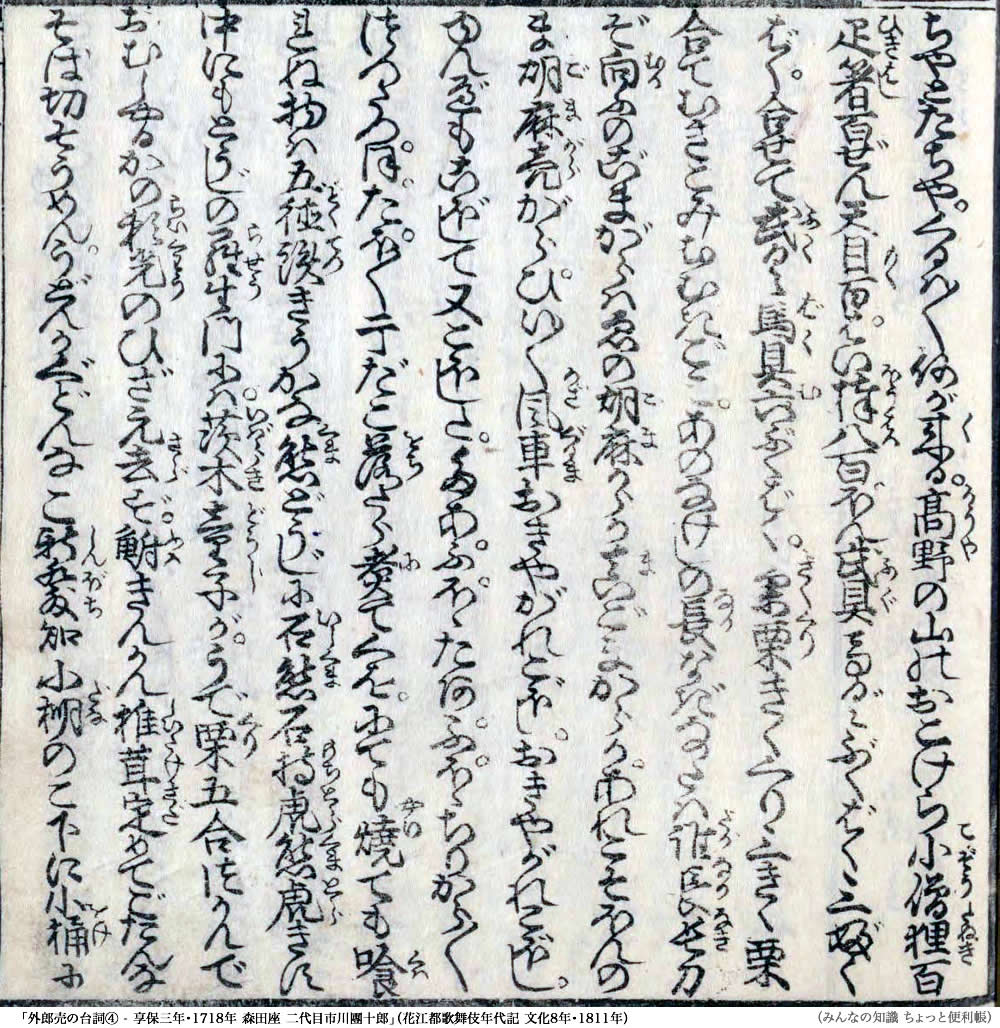 ちやとたちや。くるは〱何が来る。高野の山のおこけら小僧狸百
疋箸百ぜん天目百ぱい棒八百ぽん武具馬ぐぶぐばぐ三ぶぐ
ばぐ。合せて武ぐ馬具六ぶぐばぐ。菊栗きくくり三きく栗
合てむぎごみむむぎごみ。あのなげしの長なぎなたは誰長長刀
ぞ向ふのごまがらは荏の胡麻からか真ごまからか。あれこそほんの
ま胡麻売がらぴい〱風車おきやがれこぼし。おきやがれこぼし。
ゆんべもこぼして又こぼした。たあぷぽゝ。たあぷぽゝちりから〱
つつたつぽ。たぽ〱干だこ落たら煮てくを。にても焼ても喰
れぬ物は五徳鉄きうかな熊どうじに石熊石持虎熊虎きす
中にもとうじの羅生門には茨木童子が。うで栗五合つかんで
おむしやるかの頼光のひざ元去ず。鮒きんかん椎茸定めてごだんな
そば切そうめん。うどんかぐどんなこ新発知小棚のこ下に小桶に
「外郎売の台詞④ - 享保三年・1718年 森田座 二代目市川團十郎」（花江都歌舞伎年代記 文化8年・1811年）
（みんなの知識 ちょっと便利帳）